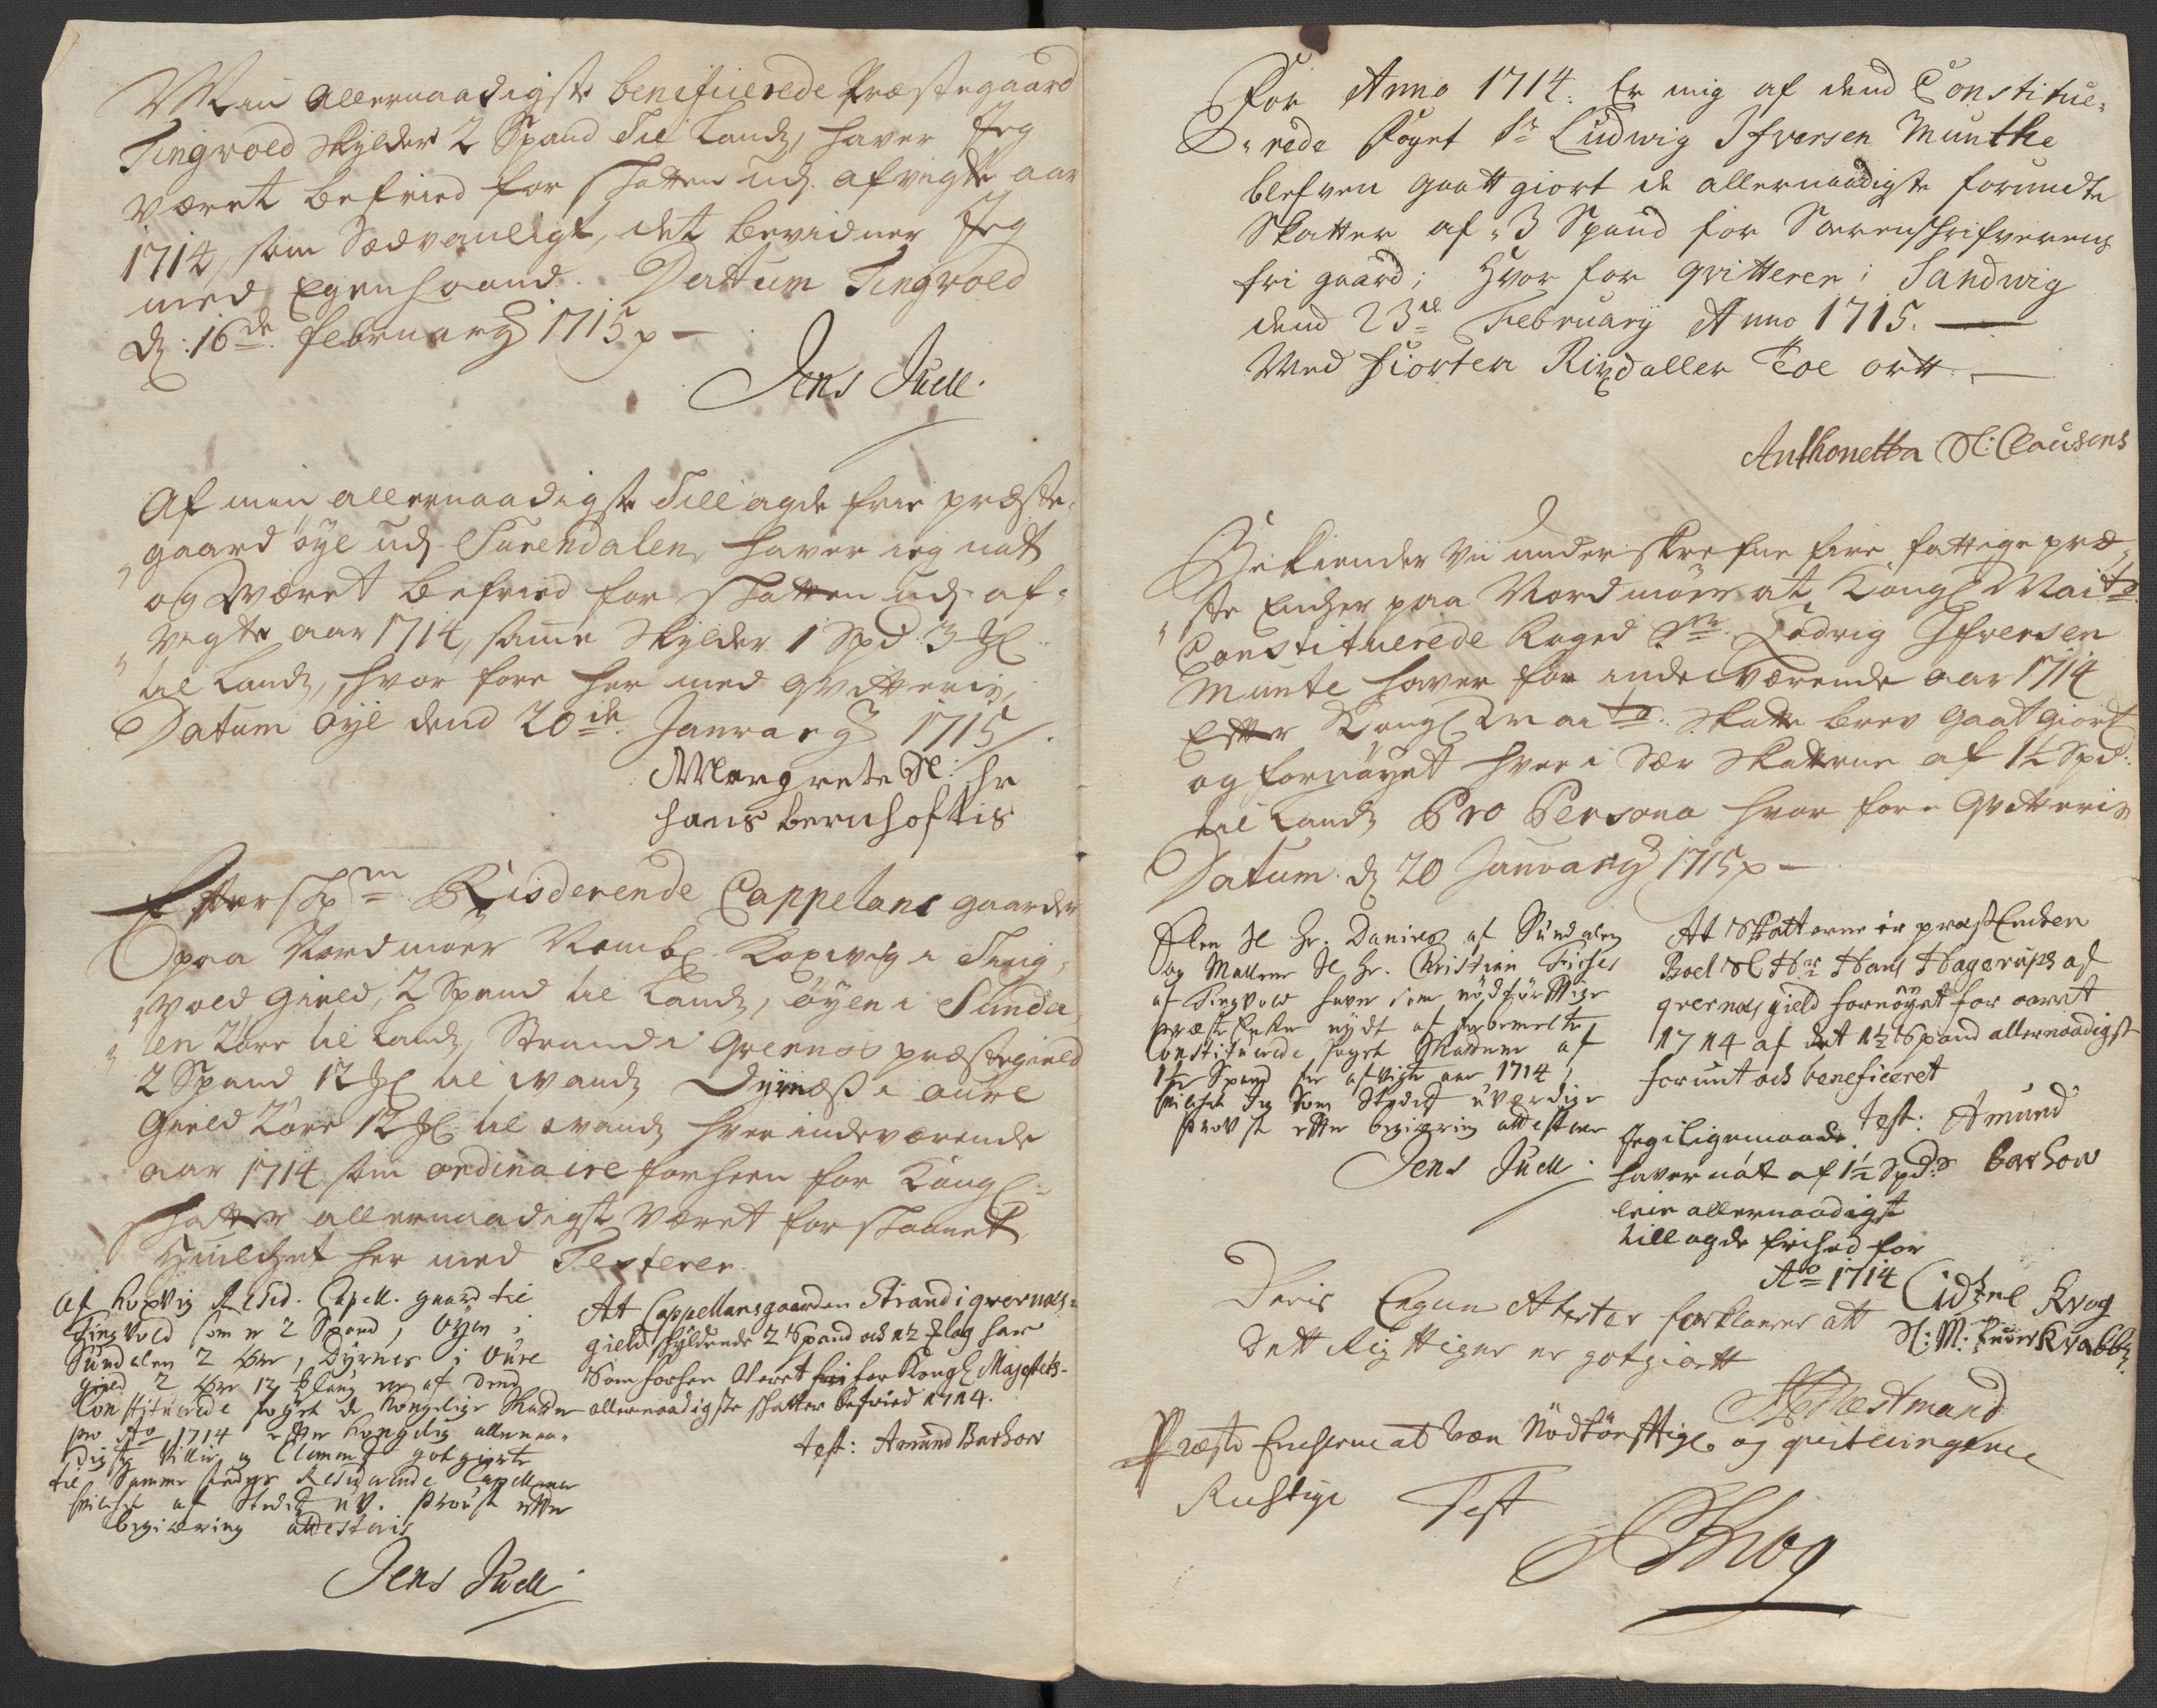 Min allernaadigste benificerede Præstegaard
Tingvold skylder 2 Spand Til Landz, haver Jeg
været befried for skatten udj afvigte aar
1714, som Sædvanligt, det bevidner Jeg
med Egenhaand. Dattum Tingvold
dj: 16de februarÿ 1715
Jens Juell.
Af min allernaadigste Till agde frie præste,
gaard öÿe udj Surendalen, haver ieg nøt
og Været befried for skatten udj af,
vigte aar 1714, samme skylder 1 Spd 3 
til Landz, hvor fore her med qvitteris,
Datum öÿe dend 20de Januarÿ 1715
Margrete Sl: hr
hans bernhoftis
Efterskr Risderende Cappelans gaarder
paa Nordmöer Nembl Koxvig i Ting,
vold Gield, 2 Spand til Landz, öÿen i Sunda
len 2 öre til Landz, Strand i Qvernes præstegield
2 Spand 12 til Landz Dÿrnæs i aure
Gield 2 öre 12 til Landz hver indeværende
aar 1714 som ordinaire forhen for Kongl
skatter allernaadigst Været forskaanet
huilchet her med Testerer
Af Koxvig Resid. Capell. gaard til
Tingvold som er 2 Spand, Öÿen i
Sundalen 2 öre, Dÿrnes i Oure
gield 2 öre 12 er af dend
Constituerede foget de kongelige Skatter
pro Ao 1714 efter kongelig allernaa,
digste Villie og godgiorte
til Samme steders Residerende Capellaner
hvilchet af Stedetz uv. Provst efter
begiæring attesteris
Jens Juell
At Cappellansgaarden Strand i qvernæs,
gield skÿldende 2 Spand och 12 Flag har
Som forhen Været for Kongl Majestets
allernaadigste skatter befried 1714.
test: Amund Barhow
For Anno 1714. Er mig af dend Constitue,
rede Foget Sr Ludwig Ifversen Munthe
blefven gaatt giort de allernaadigste forundte
Skatter af 3 Spand for Sorenskrifverens
fri gaard; Hvor for qvitterer i Sandwig
dend 23de Februarÿ Anno 1715.
Med fiorten Rixdaller Toe ortt
Anthonetta Sl: Clausens
Bekiender Vi underskrefne fire fattige præ,
ste Encher paa Nordmöer at Kongl Maits
Constituerede Foged Sr Lodvig Ifversen
Munte haver for indeværende aar 1714
Efter Kongl Maits Skatte brev gaat giort
og fornöÿet hver i Sær skatterne af 1½ Spd
til Landz Pro Persona hvor fore Qvitteris
Datum dj 20 Januarÿ 1715
Elen Sl Hr. Daniels af Sundalen
og Mallene Sl Hr. Christian Fisches
af Tingvold haver som nödtörfftige
præste Enker nÿdt af forbemelte
Constituerede foget Skatterne af
1½ Spand for afvigte aar 1714,
hvilchet Jeg som Stedetz uværdige
Provst efter begiæring attesterer
Jens Juell.
At Skatterne er præst Enchen
Boel Sl Hr Hans Hagerups af
qvernæs gield fornöyet for aaret
1714 af det 1½ Spand allernaadigst
forunt och beneficeret
test: Amund
Barhow
Jegeligemaade
haver nöt af 1½ Spds
leie allernaadigst
till agde frihed for
Ao 1714
Cidzel Krog
Sl: M: Krabbes
Deris Eegen Atester forklarer att
Dett Rigttigen er gotgiortt
Westmand
Præste Encherne at Være Nödtörfttige og qviteringerne
Richtige Test
Krog